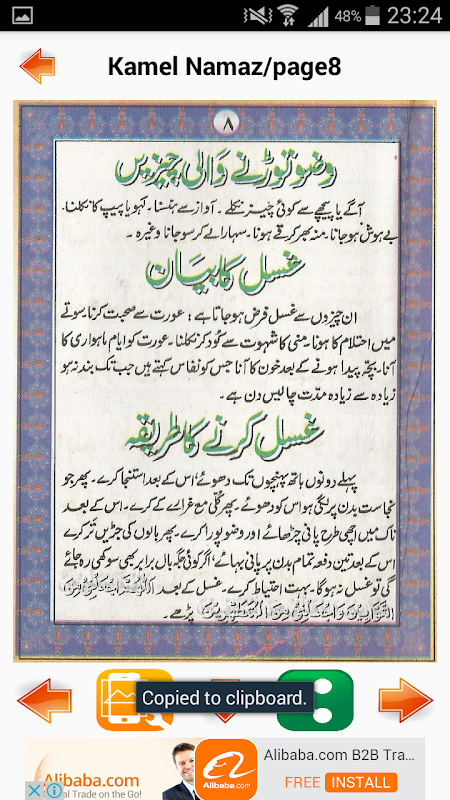 48% 23:24
Kamel Namaz/page8
۸
وضو توڑنے والی چیزیں
آگے یا پیچھے سے کوئی چیز نکلے ۔ آواز سے ہنسنا ۔ لہو یا پیپ کا نکلنا ۔
بے ہوش ہو جانا ۔ منہ بھر کر قے ہونا ۔ سہارا لے کر سو جانا وغیرہ ۔
غسل کا بیان
ان چیزوں سے غسل فرض ہو جاتا ہے : عورت سے صحبت کرنا سوتے
میں احتلام کا ہونا ۔ منی کا شہوت سے کُود کر نکلنا ۔ عورت کو ایام ماہواری کا
آنا ۔ بچہ پیدا ہونے کے بعد خون کا آنا جس کو نفاس کہتے ہیں جب تک بند نہ ہو
زیادہ سے زیادہ مدّت چالیس دن ہے ۔
غسل کرنے کا طریقہ
پہلے دونوں ہاتھ پہنچوں تک دھوئے ، اس کے بعد استنجا کرے ۔ پھر جو
نجاست بدن پر لگی ہو اس کو دھوئے ۔ پھر کُلّی مع غرارے کے کرے ۔ اس کے بعد
ناک میں اچھی طرح پانی چڑھائے اور وضو پورا کرے ۔ پھر بالوں کی جڑیں تر کرے
اس کے بعد تین دفعہ تمام بدن پر پانی بہائے ، اگر کوئی جگہ بال برابر بھی سوکھی رہ جائے
گی تو غسل نہ ہو گا ۔ بہت احتیاط کرے ۔ غسل کے بعد اَللّٰهُمَّ اجْعَلْنِيْ مِنَ
التَّوَّابِيْنَ وَاجْعَلْنِيْ مِنَ الْمُتَطَهِّرِيْنَ پڑھے ۔
Copied to clipboard.
Alibaba.com
al Trade on the Go!
Alibaba.com
Alibaba.com B2B Tra...
FREE INSTALL